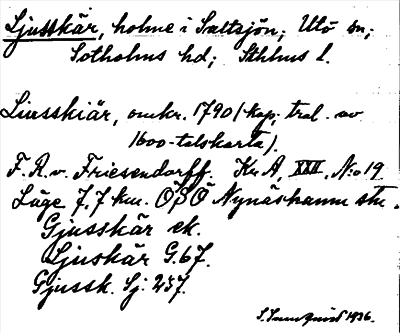 Ljusskär, holme i Saltsjön; Utö sn;
Sotholms hd; Sthlms l.
Liusskiär, omkr. 1790 (kopj. trol. av
1600-talskarta).
F. R. v. Friesendorff. Kr A, XXII, No 19
Läge 7,7 km. ÖSÖ Nynäshamn stn.
Gjusskär ek.
Ljuskär G.67.
Gjussk. Sj: 237.
1936.